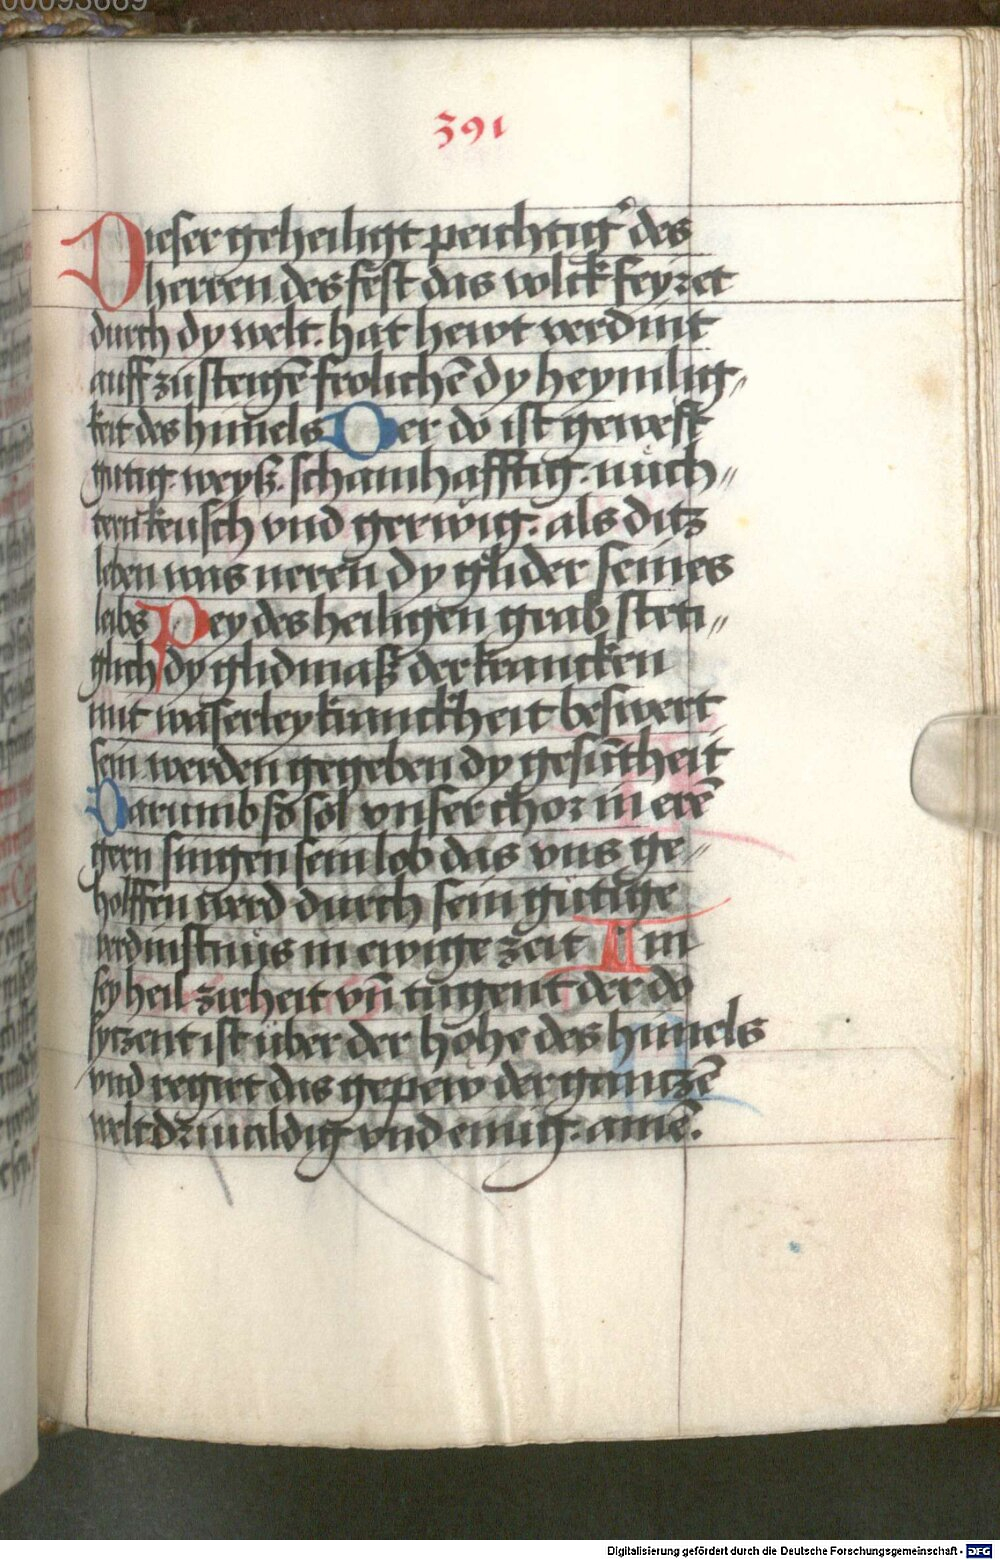 00093689
391
Dieser geheiligt peichtig̾ des
herren des fest das volck feyret
durch dy welt. hat hewt verdint
auff zu steigē frolichē dy heymlig„
keit des himels Der do ist gewest
gutig. weyß. schamhafftig. nuch„
tern keusch vnd gerwig. als ditz
leben was neren dy glider seines
leibs Pey des heiligen grab steti„
glich dy glidmaß der krancken
mit waserley kranckheit beswert
sein werden gegeben dy gesūtheit
Darumb so sol vnser chor in erē
gern singen sein lob das vns ge„
holffen werd durch sein gutige
verdinstnus in ewige zeit Im
sey heil zirheit vn̄ tugent der do
sytzent ist uber der hohe des himels
vnd regirt das gepew der gantzē
welt driualdig vnd einig. amē.
Digitalisierung gefördert durch die Deutsche Forschungsgemeinschaft - DFG